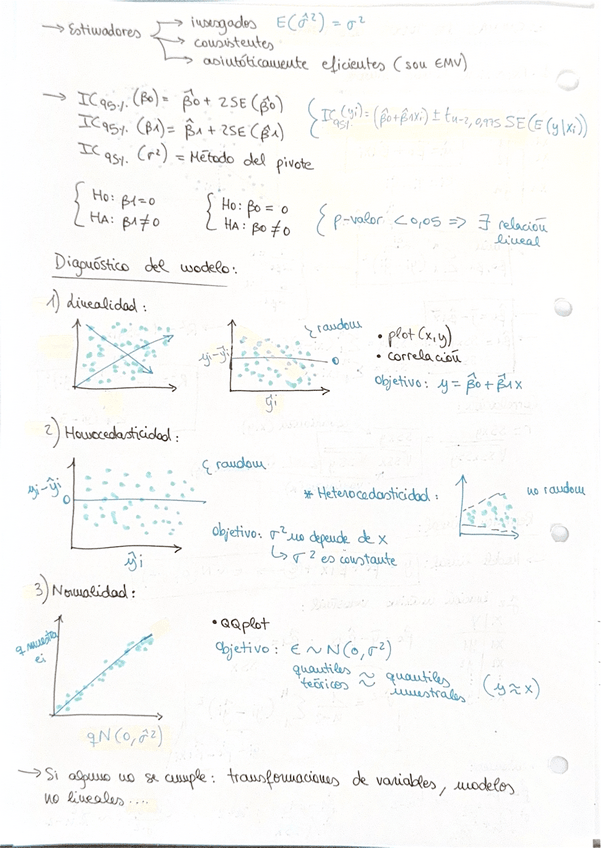 → Estimadores → insesgados E(σ̂²) = σ²
→ consistentes
→ asintóticamente eficientes (son EMV)
→ IC95%. (β0) = β̂0 + 2SE(β̂0)
IC95%. (β1) = β̂1 + 2SE(β̂1)
IC95%. (σ²) = Método del pivote
{ IC95%(yi) = (β̂0+β̂1xi) ± tn-2, 0,975 SE(E(y|xi))
{ H0: β1=0
HA: β1≠0
{ H0: β0 = 0
HA: β0 ≠ 0
{ p-valor < 0,05 => ∃ relación
lineal
Diagnóstico del modelo:
1) Linealidad:
{ random
yi-ŷi
0
ŷi
• plot(x,y)
• correlación
Objetivo: y = β̂0 + β̂1x
2) Homocedasticidad:
{ random
yi-ŷi
0
ŷi
* Heterocedasticidad:
no random
Objetivo: σ² no depende de x
↳ σ² es constante
3) Normalidad:
q muestra
ei
qN(0,σ̂²)
• QQplot
Objetivo: ε ~ N(0,σ²)
quantiles teóricos ≈ quantiles muestrales (y≈x)
→ Si alguno no se cumple: transformaciones de variables, modelos
no lineales....